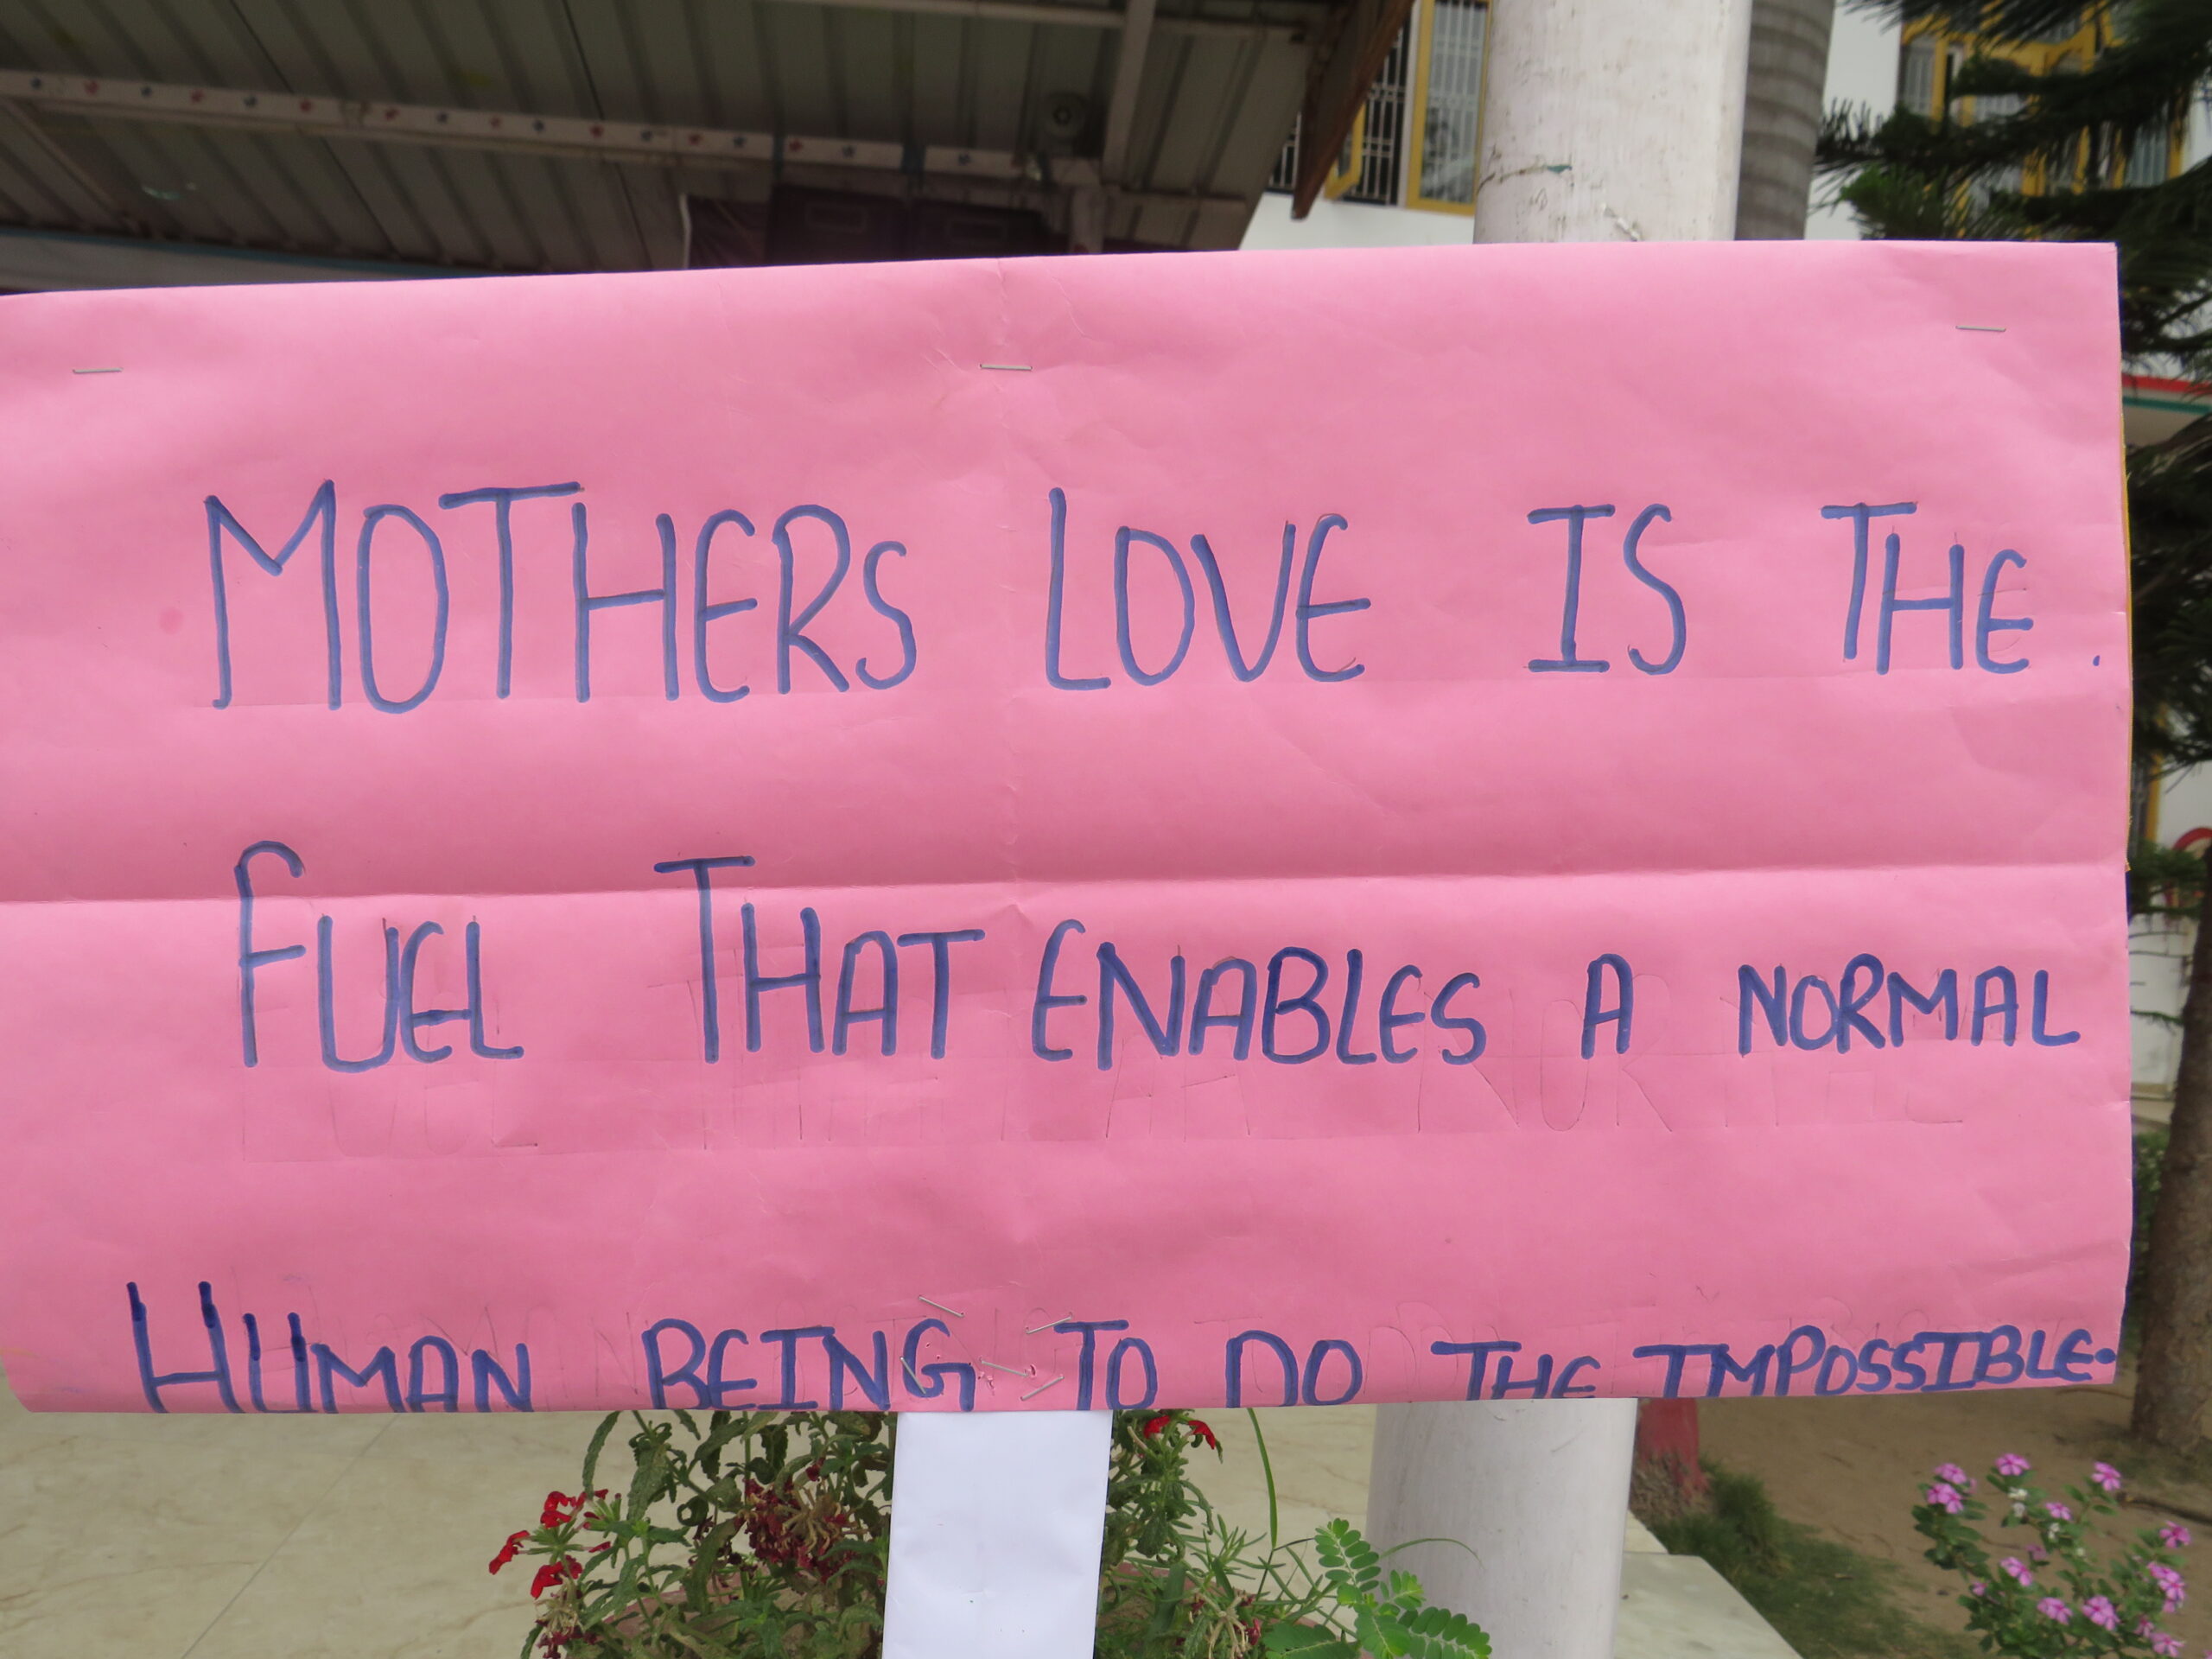 MOTHERS LOVE IS THE.
FUEL THAT ENABLES A NORMAL
HUMAN BEING TO DO THE IMPOSSIBLE.